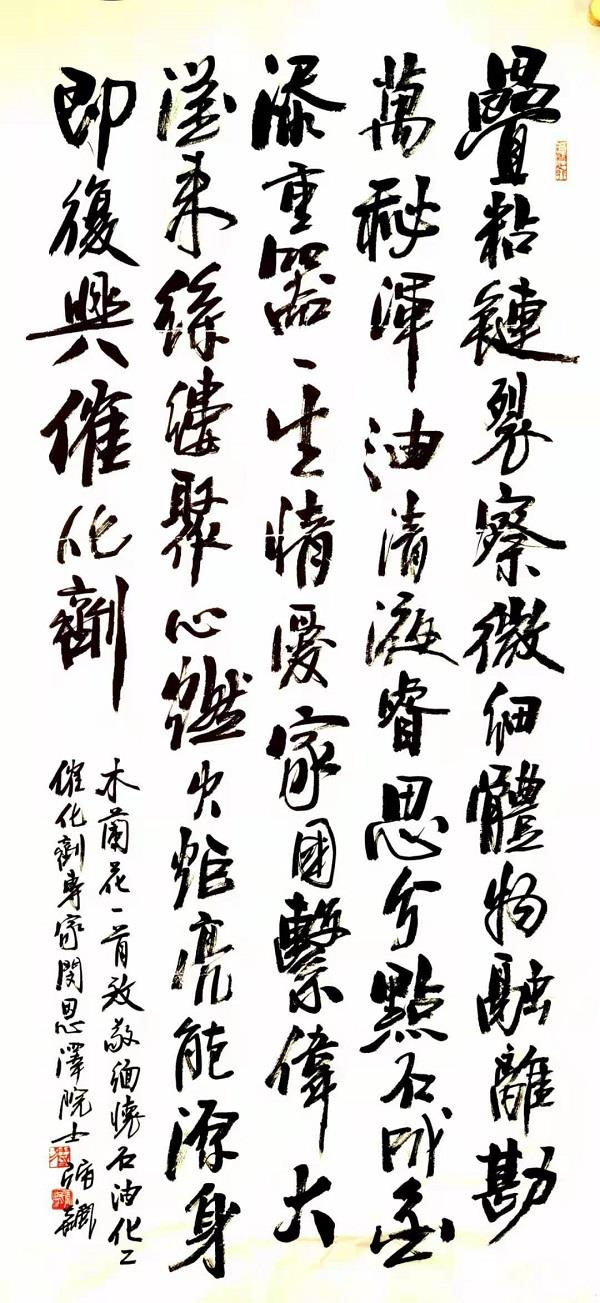 疊粘鏈裂察微細體物融離勘
萬秘渾油清液睿思兮點石成金
添重器一生情優家國繫偉大
來絲縷聚心燃火炬亮能源身
即復興催化劑
木蘭花一首致敬緬懷石油化工
催化劑專家閔恩澤院士